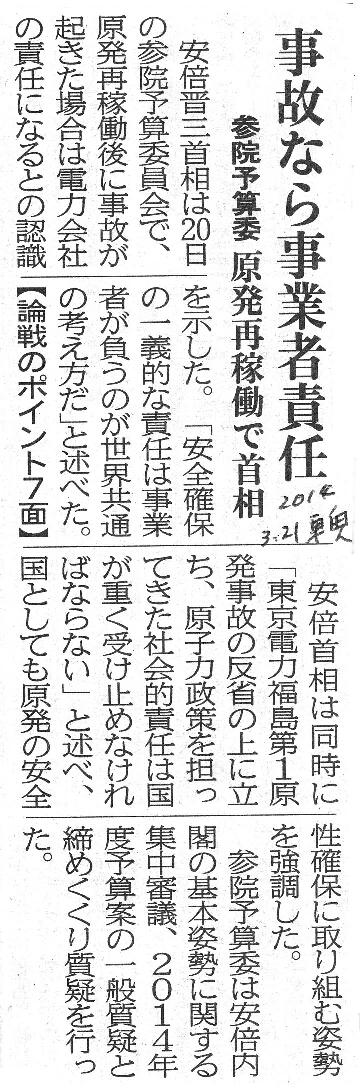 事故なら事業者責任
参院予算委 原発再稼働で首相
2014
3.21
安倍晋三首相は20日
の参院予算委員会で、
原発再稼働後に事故が
起きた場合は電力会社
の責任になるとの認識
を示した。「安全確保
の一義的な責任は事業
者が負うのが世界共通
の考え方だ」と述べた。
【論戦のポイント7面】
安倍首相は同時に
「東京電力福島第1原
発事故の反省の上に立
ち、原子力政策を担っ
てきた社会的責任は国
が重く受け止めなけれ
ばならない」と述べ、
国としても原発の安全
性確保に取り組む姿勢
を強調した。
参院予算委は安倍内
閣の基本姿勢に関する
集中審議、2014年
度予算案の一般質疑と
締めくくり質疑を行っ
た。